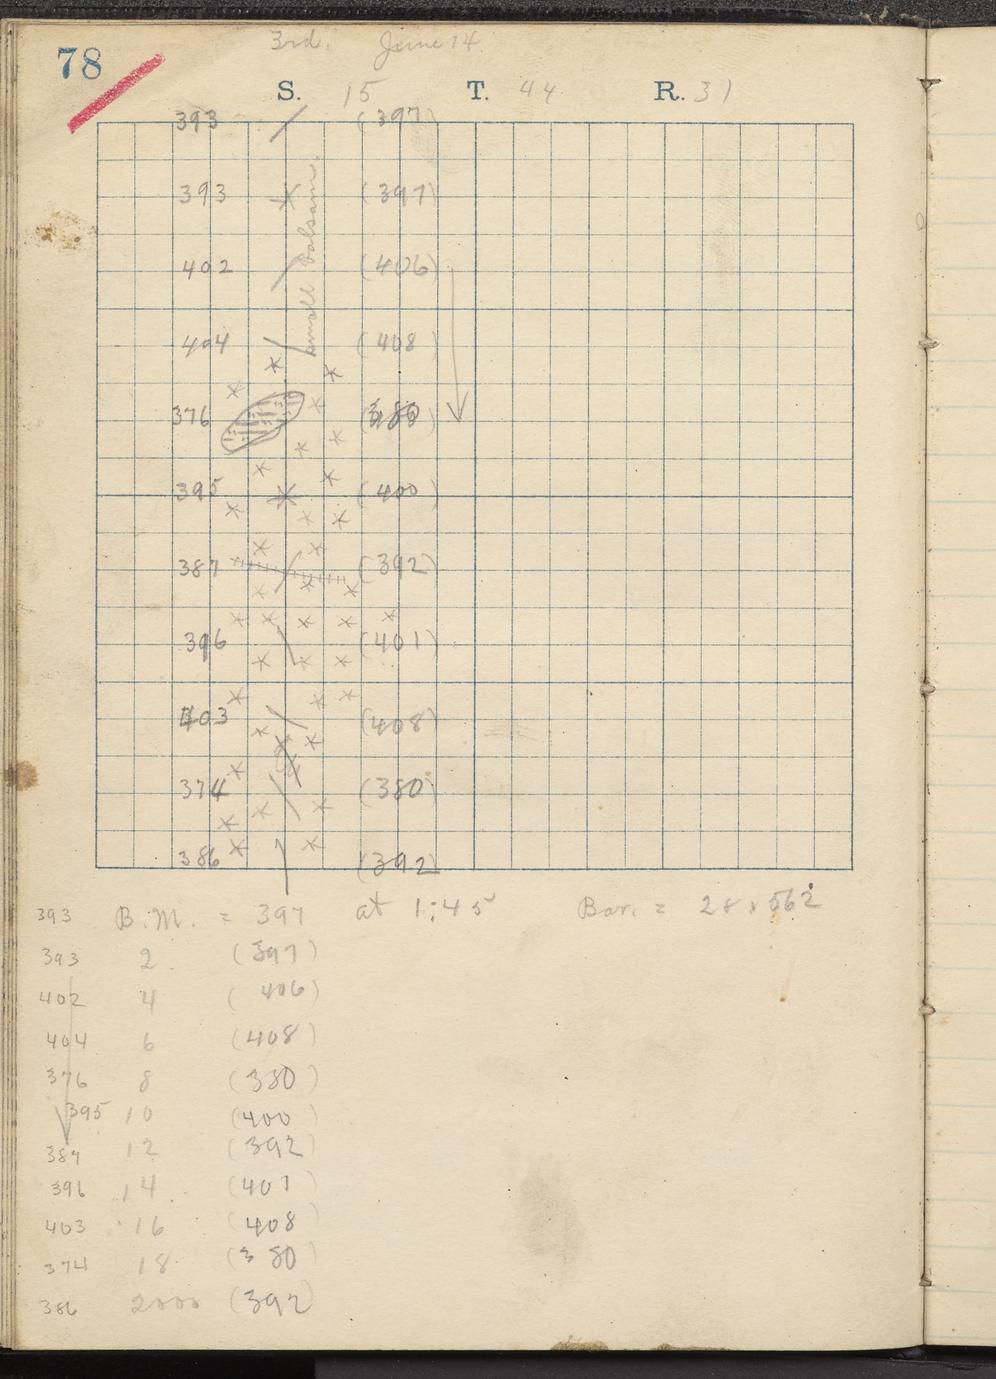 78
3rd. June 14.
S. 15 T. 44 R. 31
393 (397)
393 (397)
402 (406)
404 (408)
376 (380)
395 (400)
387 (392)
396 (401)
403 (408)
374 (380)
386 (392)
small balsam.
393 B.M. = 397 at 1:45 Bar. = 28.562
393 2 (397)
402 4 (406)
404 6 (408)
376 8 (380)
395 10 (400)
387 12 (392)
396 14. (401)
403 16 (408)
374 18 (380)
386 2000 (392)